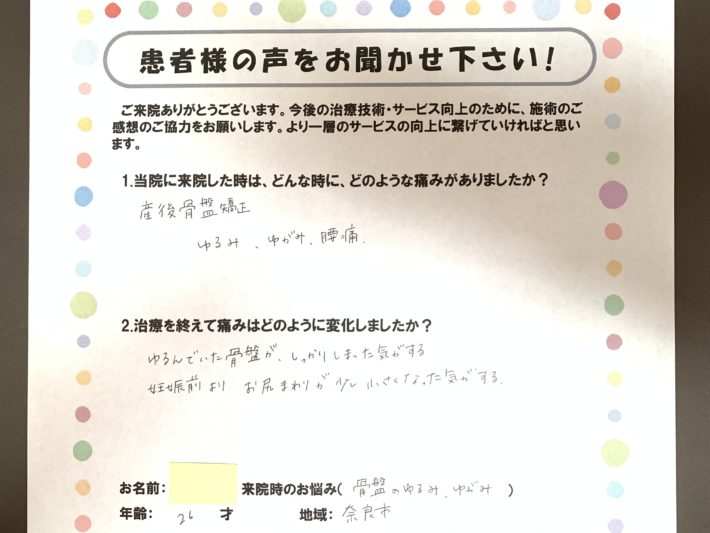 患者様の声をお聞かせ下さい！
ご来院ありがとうございます。今後の治療技術・サービス向上のために、施術のご
感想のご協力をお願いします。より一層のサービスの向上に繋げていければと思い
ます。
1.当院に来院した時は、どんな時に、どのような痛みがありましたか？
産後骨盤矯正
ゆるみ、ゆがみ、腰痛.
2.治療を終えて痛みはどのように変化しましたか？
ゆるんでいた骨盤が、しっかりしまった気がする
妊娠前より お尻まわりが少し小さくなった気がする.
お名前： 来院時のお悩み( 骨盤のゆるみ、ゆがみ )
年齢： 26 才 地域： 奈良市